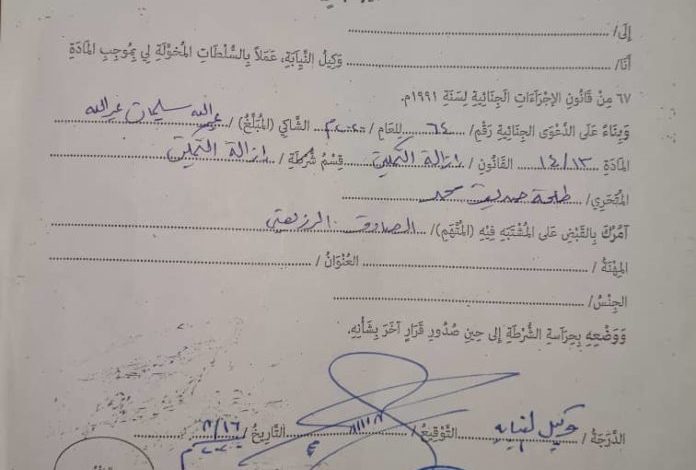 إِلَى/
أَنَا/ وَكِيْلُ النِّيَابَةِ، عَمَلاً بِالسُّلْطَاتِ المُخَوَّلَةِ لِي بِمُوجِبِ المَادَةِ
٦٧ مِنْ قَانُونِ الإِجْرَاءَاتِ الجِنَائِيَةِ لِسَنَةِ ١٩٩١م.
وَبِنَاءً عَلَى الدَّعْوَى الجِنَائِيَةِ رَقْمِ/ ٦٤ لِلعَامِ/ ٢٠٢٠م الشَّاكِي (المُبَلِّغُ)/ عبدالله سليمان عبدالله
المَادَةِ ١٤/١٣ القَانُونُ/ إزالة التمكين قِسْمُ شُرْطَةِ/ إزالة التمكين
المُتَحَرِي/ طلحة صديق محمد
آمُرُكَ بِالقَبْضِ عَلَى المُشْتَبَهِ فِيْهِ (المُتَّهَمِ)/ الصادق الرزيقي
المِهْنَةُ/ العُنْوَانُ/
الجِنْسُ/
وَوَضْعِهِ بِحِرَاسَةِ الشُّرْطَةِ إِلَى حِينِ صُدُورِ قَرَارٍ آخَرَ بِشَأْنِهِ.
الدَّرَجَةُ/ وكيل نيابه التَّوْقِيعُ/ التَّارِيخُ/ ٨/١٦